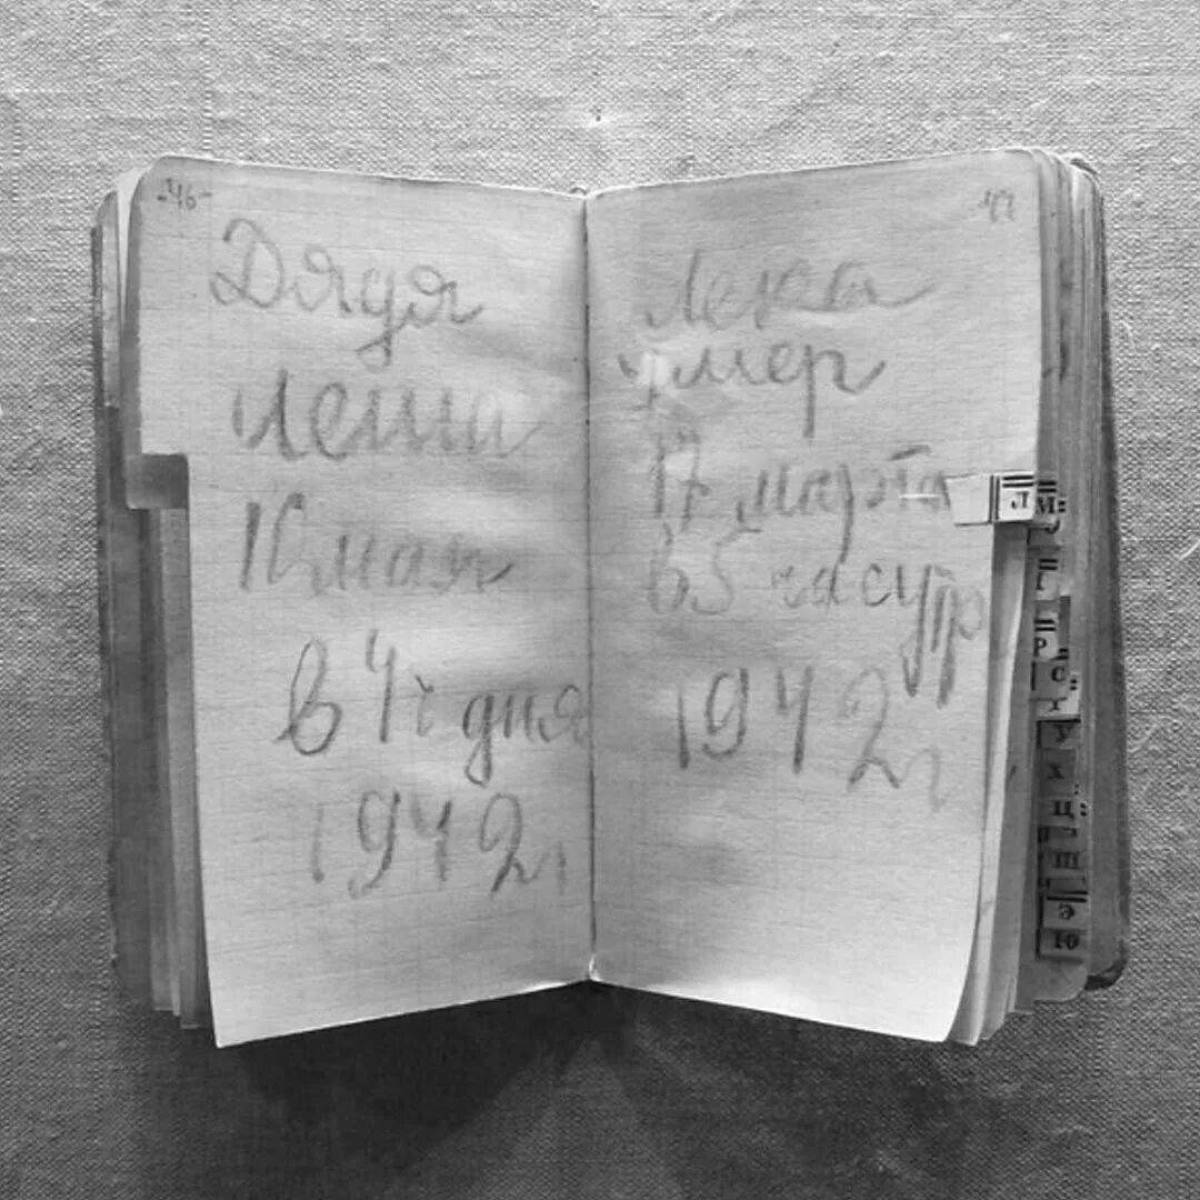 -46-
Дядя
Леша
10 мая
в 4 ч дня
1942 г
47
Лека
умер
17 марта
в 5 час утр
1942 г
Л
М
Р
С
Х
Ц
Ш
Ю